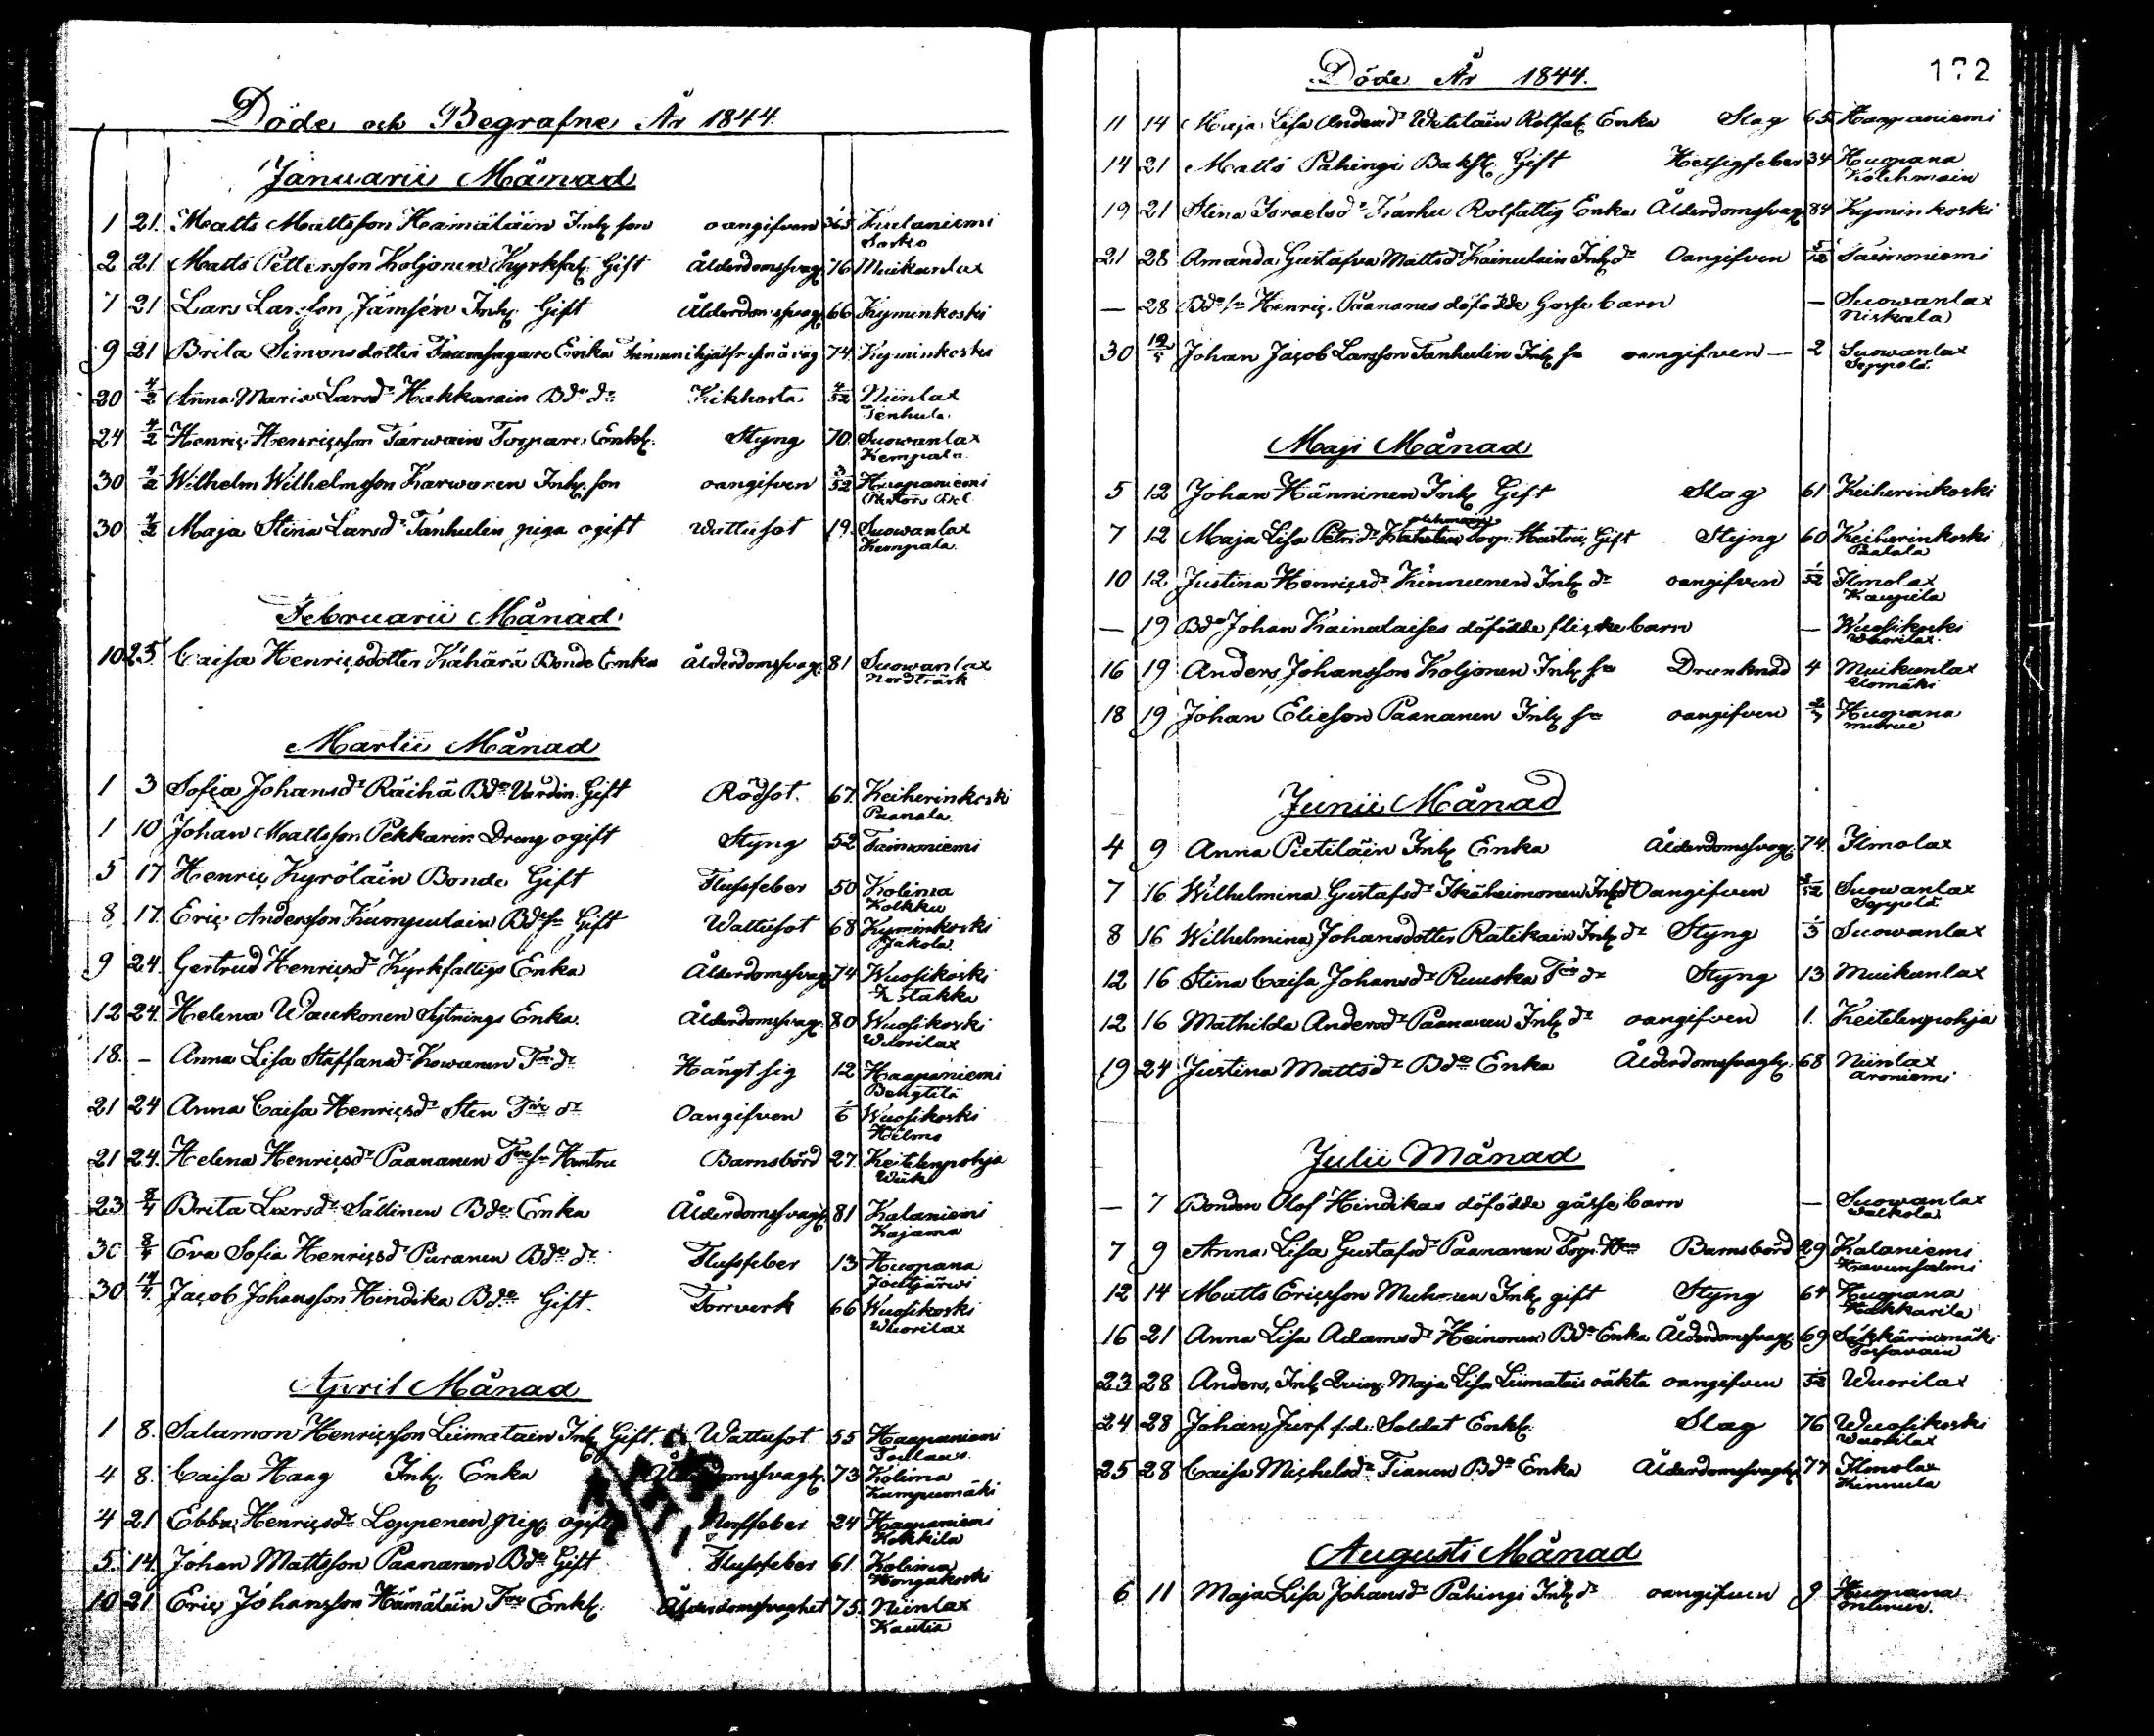 Döde och Begrafne År 1844.
Januarii Månad
1 21. Matts Mattsson Hämäläin Inh. son oangifven Kulaniemi
2 21 Matts Pettersson Koljonen Kyrkfat. Gift Ålderdomssvag. 76 Muikanlax
7 21 Lars Larsson Jämsén Inh. Gift Ålderdomssvag. 66 Kyminkoski
9 21 Brita Simonsdotter Enka 74. Kyminkoski
20 4/2 Anna Maria Larsd:r Hakkarain Bde d:r Kikhosta 4/52 Niinlax
Tenhula.
24 4/2 Henric Henricsson Tarwain Torpare Enkl. Styng 70. Suowanlax
Kempala.
30 4/2 Wilhelm Wilhelmsson Karwonen Inh. son oangifven 3/52 Huopaniemi
30 4/2 Maja Stina Larsd:r Tanhulin piga ogift Wattusot 19. Suowanlax
Kempala.
Februarii Månad
10 25 Caisa Henricsdotter Kähärä Bonde Enka Ålderdomssvag. 81 Suowanlax
Nordträsk
Martii Månad
1 3 Sofia Johansd:r Räihä Bde Värdin. Gift Rödsot. 67. Keiherinkoski
Paanala.
1 10 Johan Mattsson Pekkarin Dreng ogift Styng 52 Taimoniemi
5 17 Henric Kyröläin Bonde Gift Flussfeber 50 Kolima
Kolkku
8 17. Eric Andersson Kumpulain Bde sn Gift Wattusot 68 Kyminkoski
Jakola.
9 24. Gertrud Henricsd:r Kyrkfattigs Enka Ålderdomssvag. 74 Wuosikoski
12 24. Helena Waukonen Sytnings Enka. Ålderdomssvag. 80 Wuosikoski
Wuorilax
18. – Anna Lisa Staffansd:r Kowanen Tre d:r Hängt sig 12 Haapaniemi
Bengtilä
21 24 Anna Caisa Henricsd:r Sten Tre d:r Oangifven 1/6 Wuosikoski
Hilmo
21 24. Helena Henricsd:r Paananen Tre sn Hustru Barnsbörd 27. Keitelenpohja
Wiik
23 8/4 Brita Larsd:r Sällinen Bde Enka Ålderdomssvagh. 81 Kalaniemi
Kajama
30 8/4 Eva Sofia Henricsd:r Puranen Bde d:r Flussfeber 13 Huopana
Joutjärwi
30 14/4. Jacob Johansson Hindika Bde Gift. Torrverk 66 Wuosikoski
Wuorilax
April Månad
1 8. Salamon Henricsson Liimatain Inh. Gift. Wattusot 55 Haapaniemi
4 8. Caisa Haag Inh. Enka Ålderdomssvagh. 73 Kolima
Kumpumäki
4 21 Ebba Henricsd:r Leppenen pig. ogift Nerffeber 24 Haapaniemi
Kokkila
5. 14. Johan Mattsson Paananen Bde Gift Flussfeber 61 Kolima
Hongakoski
10 21 Eric Johansson Hämäläin Tre Enkl. Ålderdomssvaghet 75. Niinlax
Kautto
Döde År 1844.
11 14 Maja Lisa Andersd:r Wetiläin Rotfat. Enka Slag 65 Haapaniemi
14 21 Matts Pahingi Bakst. Gift Hetsigfeber 34 Huopana
Kolehmain
19 21 Stina Israelsd:r Karhu Rotfattig Enka Ålderdomssvag. 84 Kyminkoski
21 28 Amanda Gustafva Mattsd:r Kainulain Inh. d:r Oangifven 5/12 Taimoniemi
– 28 Bde sn Henric Paananes döfödde Gosse barn – Suowanlax
Niskala
30 12/5 Johan Jacob Larsson Tanhulin Inh. sn oangifven – 2 Suowanlax
Seppälä.
Maji Månad
5 12 Johan Hänninen Inh. Gift Slag 61 Keiherinkoski
7 12 Maja Lisa Petrid:r Torp. Hustru, Gift Styng 60 Keiherinkoski
Paalala
10 12 Justina Henricsd:r Kinnunen Inh. d:r oangifven 1/52 Ilmolax
Kaupila
– 19 Bde Johan Kainulaises döfödde flicke barn – Wuosikoski
Wuorilax.
16 19 Anders Johansson Koljonen Inh. sn Drunknad 4 Muikanlax
Ulomäki
18 19 Johan Eliesson Paananen Inh. sn oangifven Huopana
Junii Månad
4 9 Anna Pietiläin Inh. Enka Ålderdomssvag. 74. Ilmolax
7 16 Wilhelmina Gustafsd:r Ikäheimonen Inh. d. Oangifven Suowanlax
Seppälä
8 16 Wilhelmina Johansdotter Ratikain Inh. d:r Styng Suowanlax
12 16 Stina Caisa Johansd:r Ruuska Tre d:r Styng 13 Muikanlax
12 16 Mathilda Andersd:r Paananen Inh. d:r oangifven 1. Keitelenpohja
19 24 Justina Mattsd:r Bde Enka Ålderdomssvagh. 68 Niinlax
Aroniemi
Julii Månad
– 7 Bonden Olof Hindikas döfödde gosse barn – Suowanlax
Walkola
7 9 Anna Lisa Gustafsd:r Paananen Torp. Hru Barnsbörd 29 Kalaniemi
Kravunsalmi
12 14 Matts Ericsson Muhonen Inh. gift Styng 64 Huopana
Hakkarila
16 21 Anna Lisa Adamsd:r Heinonen Bde Enka Ålderdomssvag. 69 Säkkärinmäki
23 28 Anders, Inh. Qvin. Maja Lisa Liimatais oäkta oangifven 1/52 Wuorilax
24 28 Johan Jurf f.d. Soldat Enkl. Slag 76 Wuosikoski
Wuorilax
25 28 Caisa Michelsd:r Tianen Bde Enka Ålderdomssvagh. 77 Ilmolax
Kinnula
Augusti Månad
6 11 Maja Lisa Johansd:r Pahingi Inh. d:r oangifven 9 Huopana